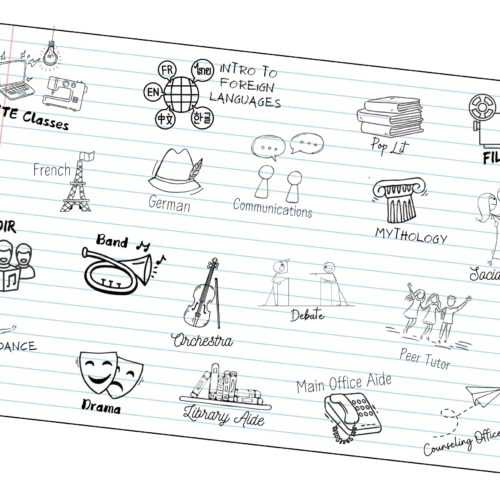 TE Classes
FR
ไทย
EN
中文
한글
INTRO TO
FOREIGN
LANGUAGES
Pop Lit
FIL
French
German
Communications
MYTHOLOGY
Social
OIR
Band
Orchestra
Debate
Peer Tutor
DANCE
Drama
Library Aide
Main Office Aide
Counseling Office